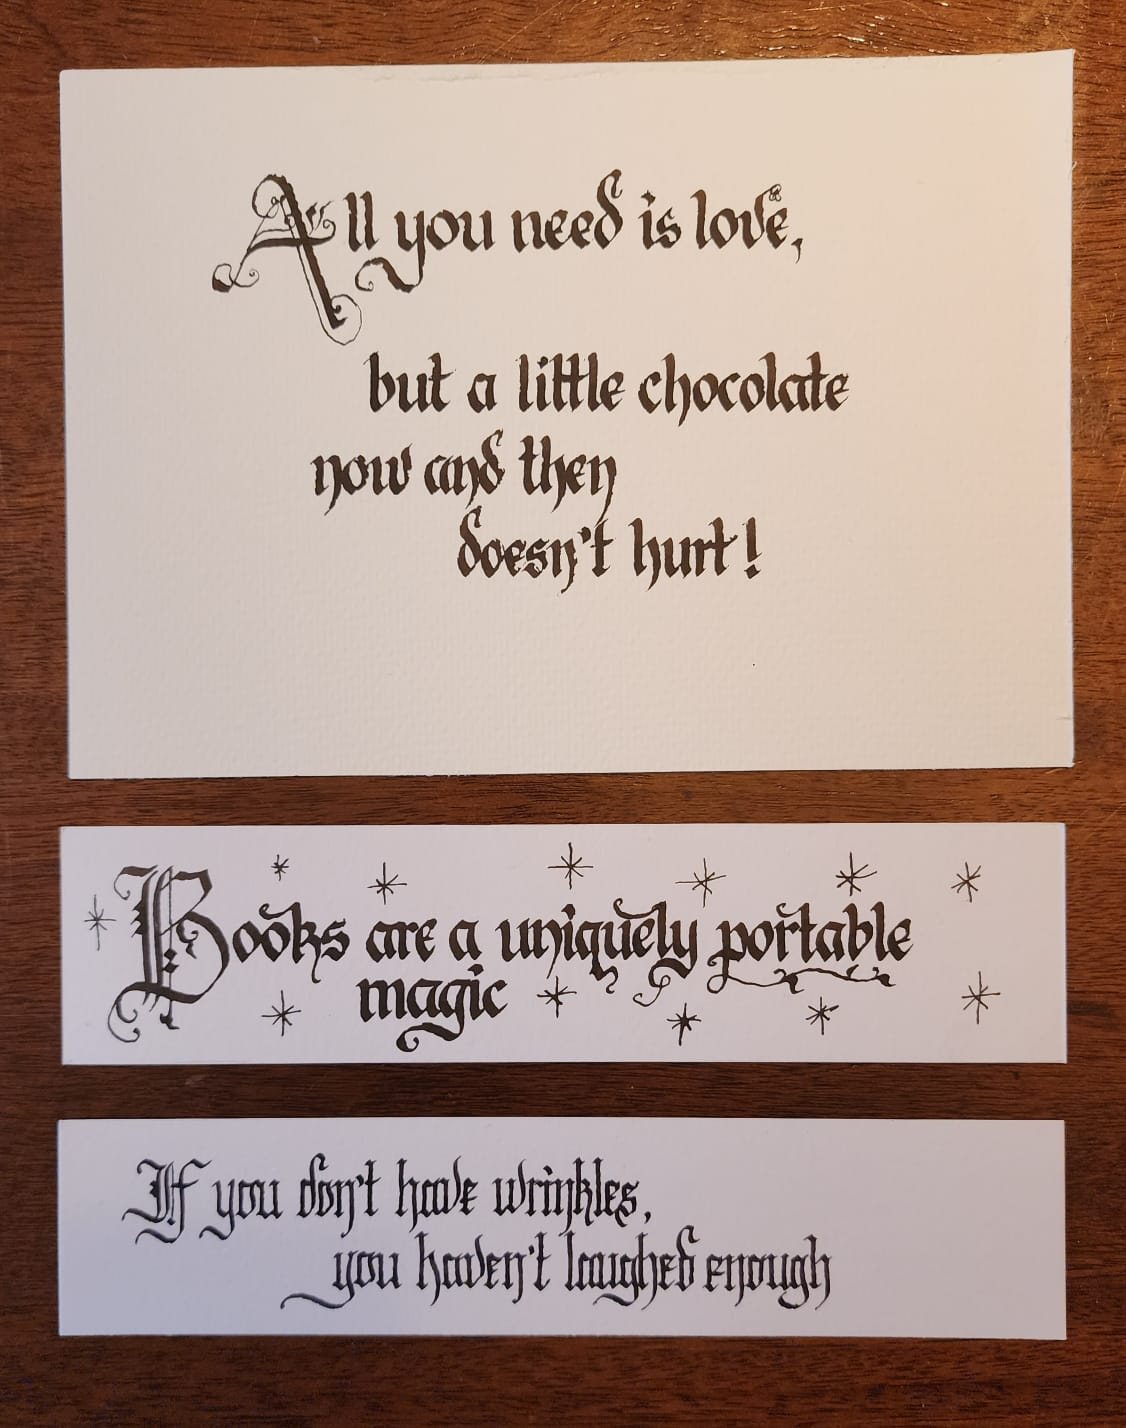 All you need is love,
but a little chocolate
now and then
doesn't hurt!
Books are a uniquely portable
magic
If you don't have wrinkles,
you haven't laughed enough